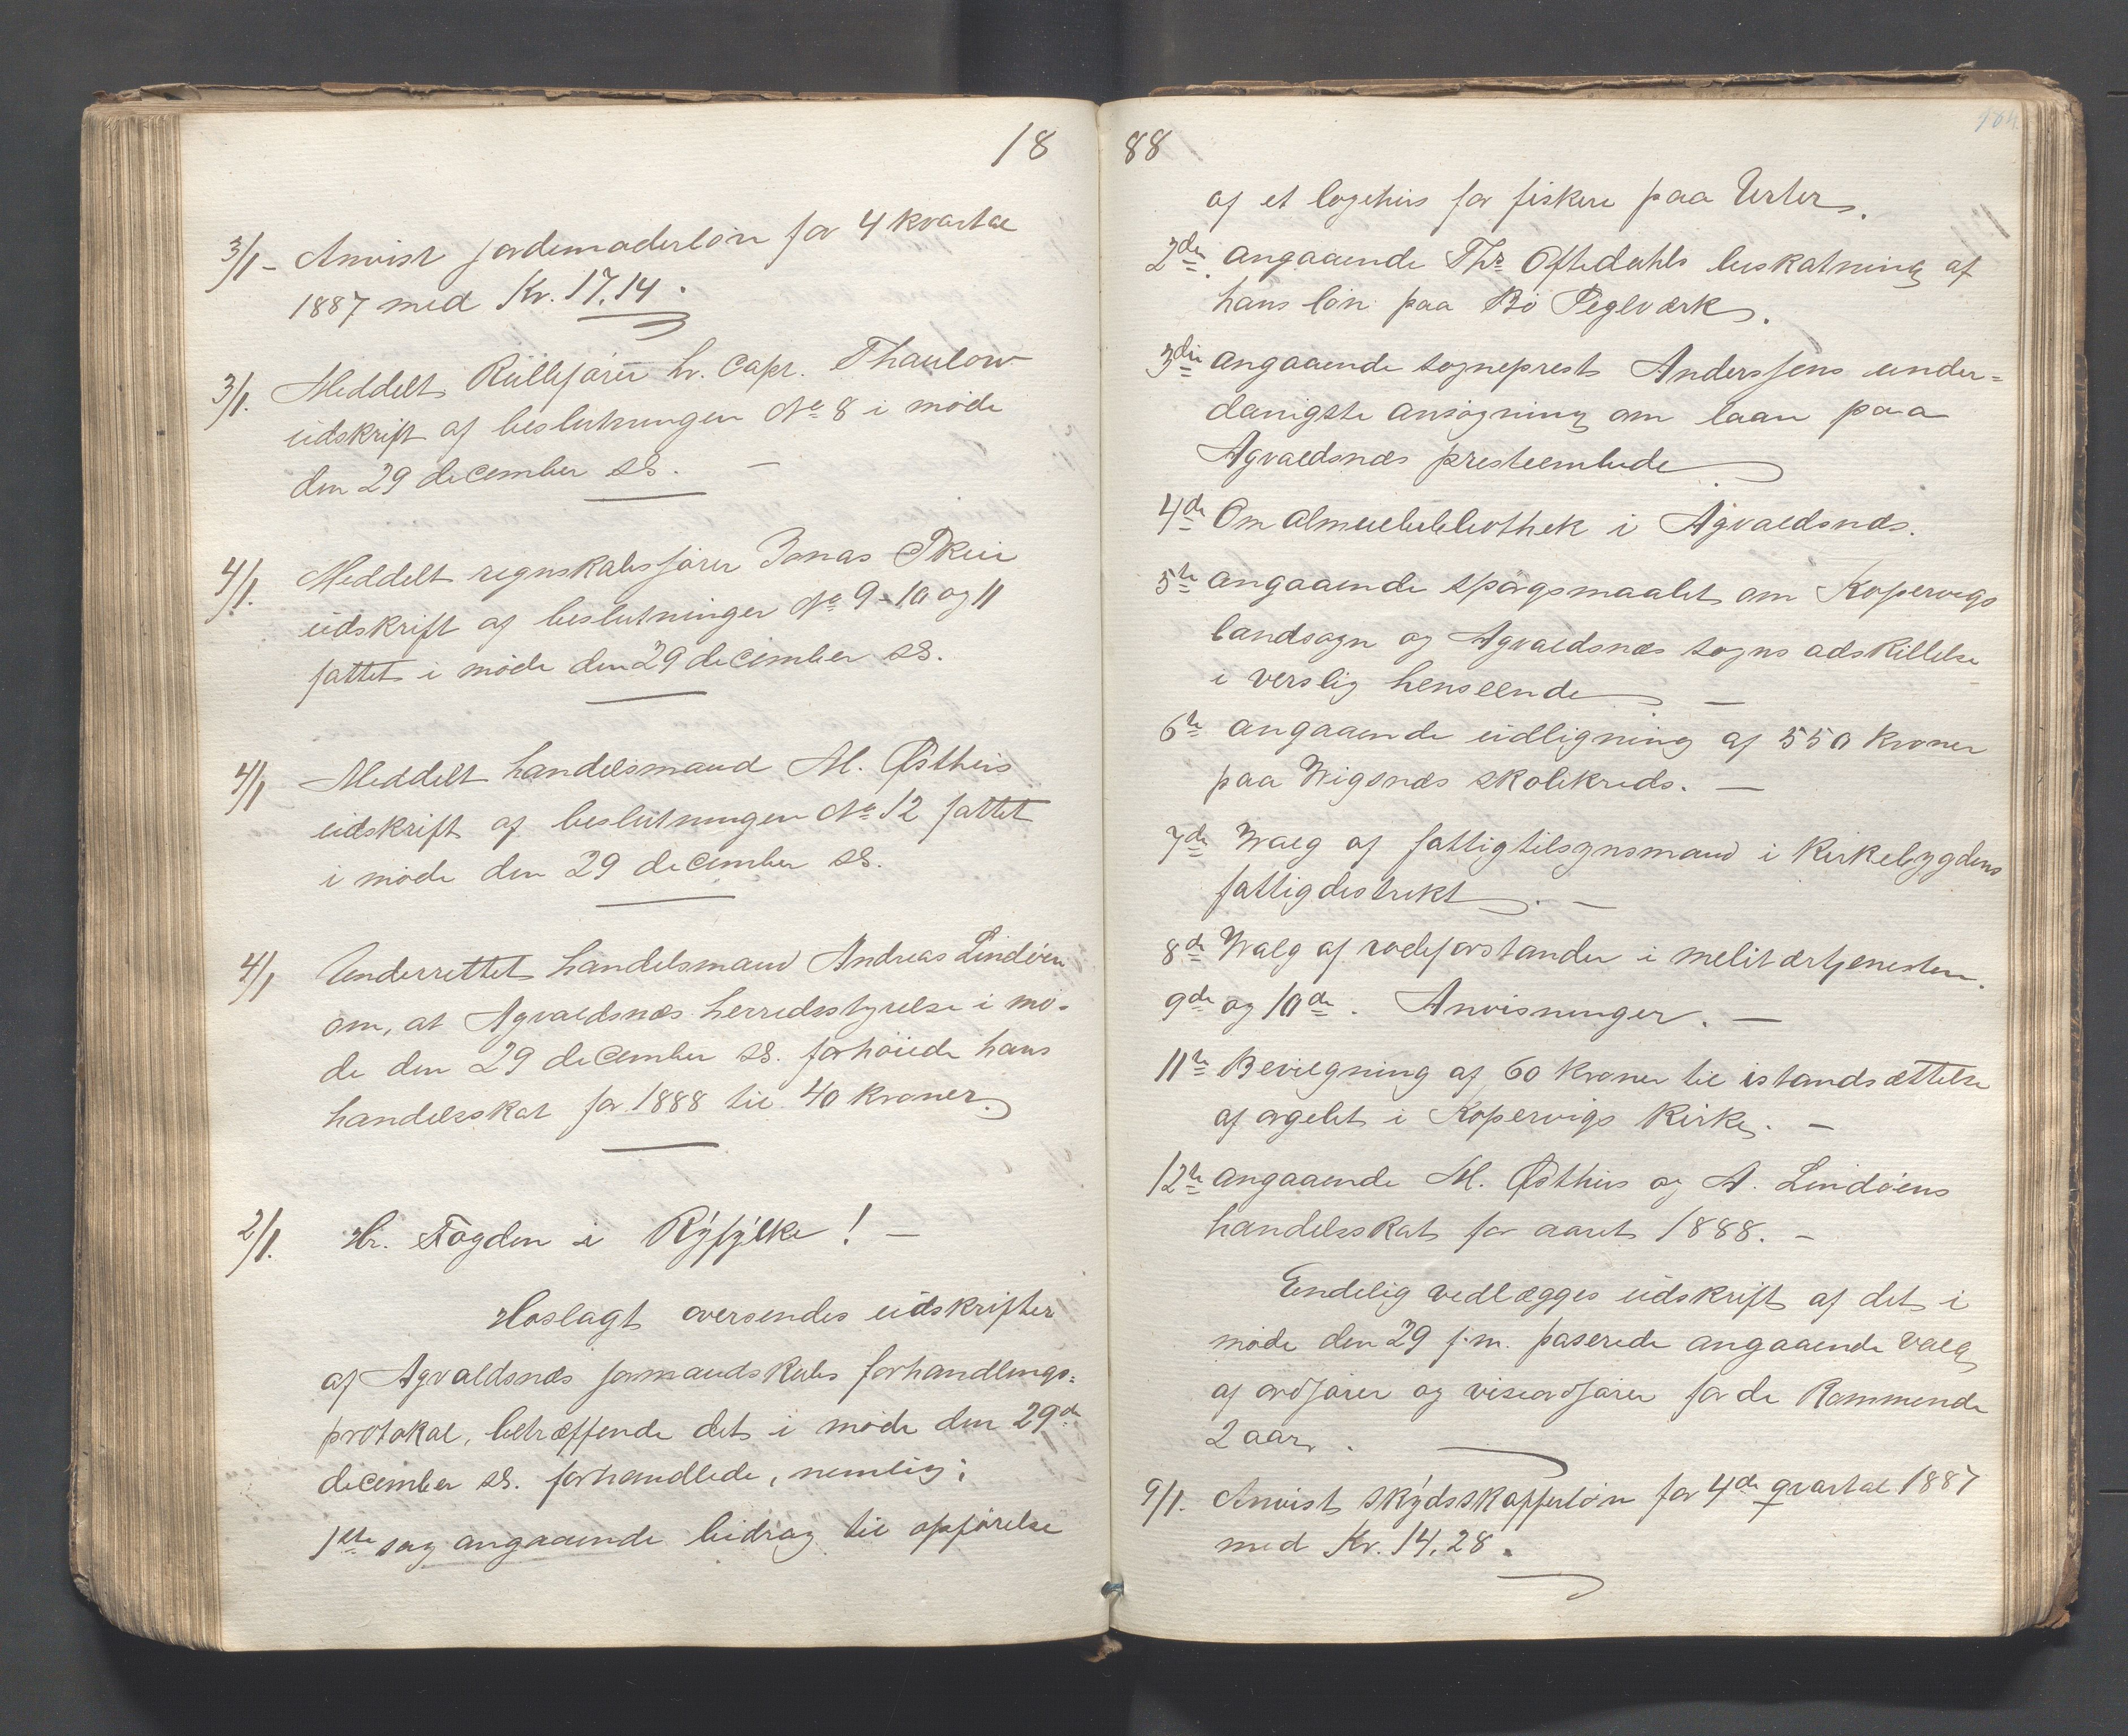 18
3/1 - Anvist jordemoderløn for 4 kvartal
1887 med Kr. 17.14.
3/1. Meddelt Rulleførér hr. Capt. Thaulow
udskrift af beslutningen No 8 i møde
den 29 december ds. —
4/1. Meddelt regnskabsfører Jonas Skeie
udskrift af beslutninger No 9 - 10 og 11
fattet i møde den 29 december ds.
4/1 Meddelt handelsmand M. Østhus
udskrift af beslutningen No 12 fattet
i møde den 29 december ds.
4/1 Underrettet handelsmand Andreas Lindøen
om, at Agvaldsnæs herredsstyrelse i mø-
de den 29 december ds. forhøiede hans
handelsskat for 1888 til 40 kroner.
2/1. Hr. Fogden i Ryfylke! —
Hoslagt oversendes udskrifter
af Agvaldsnæs formandskabs forhandlings-
protokol, betræffende det i møde den 29de
december ds. forhandlede, nemlig:
1ste sag angaaende bidrag til opførelse
88
184.
af et logihus for fiskere paa Urter.
2den angaaende Thr Oftedahls beskatning af
hans løn paa Bø Teglværk.
3die angaaende sogneprest Anderssens under-
danigste ansøgning om laan paa
Agvaldsnæs presteembede
4de Om almuebibliothek i Agvaldsnæs.
5te angaaende spørgsmaalet om Kopervigs
landsogn og Agvaldsnæs sogns adskillelse
i verslig henseende —
6te angaaende udligning af 550 kroner
paa Wigsnæs skolekreds. —
7de Walg af fattigtilsynsmand i Kirkebygdens
fattigdistrikt. —
8de Walg af rodeforstander i militærtjenesten.
9de og 10de. Anvisninger. —
11te Bevilgning af 60 kroner til istandsættelse
af orgelet i Kopervigs Kirke. —
12te angaaende M. Østhus og A. Lindøens
handelsskat for aaret 1888. —
Endelig vedlægges udskrift af det i
møde den 29 f.m. paserede angaaende valg
af ordfører og viseordfører for de kommende
2 aar.
9/1. Anvist skydsskafferløn for 4de qvartal 1887
med Kr. 14,28.